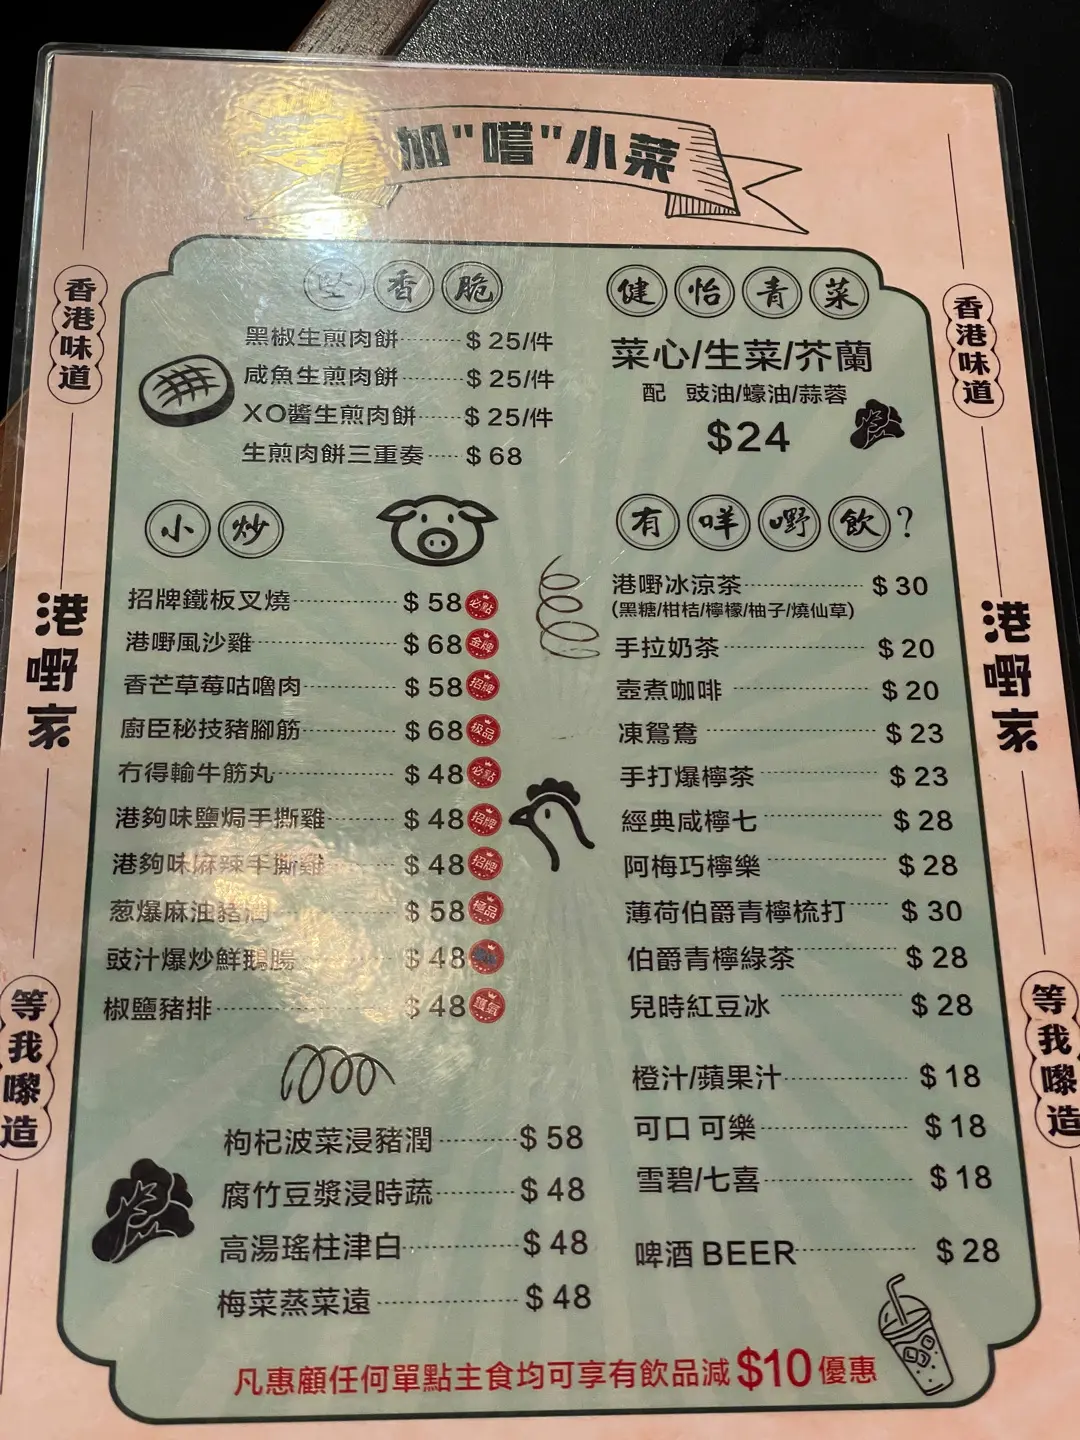 加"嚐"小菜
香港味道
港嘢家
等我嚟造
堅香脆
黑椒生煎肉餅 $25/件
咸魚生煎肉餅 $25/件
XO醬生煎肉餅 $25/件
生煎肉餅三重奏 $68
健怡青菜
菜心/生菜/芥蘭
配 豉油/蠔油/蒜蓉
$24
小炒
招牌鐵板叉燒 $58 必點
港嘢風沙雞 $68 金牌
香芒草莓咕嚕肉 $58 招牌
廚臣秘技豬腳筋 $68 极品
冇得輸牛筋丸 $48 必點
港夠味鹽焗手撕雞 $48 招牌
港夠味麻辣手撕雞 $48 招牌
葱爆麻油豬潤 $58 極品
豉汁爆炒鮮鵝腸 $48
椒鹽豬排 $48 鑊氣
枸杞波菜浸豬潤 $58
腐竹豆漿浸時蔬 $48
高湯瑤柱津白 $48
梅菜蒸菜遠 $48
有咩嘢飲?
港嘢冰涼茶 $30
(黑糖/柑桔/檸檬/柚子/燒仙草)
手拉奶茶 $20
壺煮咖啡 $20
凍鴛鴦 $23
手打爆檸茶 $23
經典咸檸七 $28
阿梅巧檸樂 $28
薄荷伯爵青檸梳打 $30
伯爵青檸綠茶 $28
兒時紅豆冰 $28
橙汁/蘋果汁 $18
可口可樂 $18
雪碧/七喜 $18
啤酒 BEER $28
凡惠顧任何單點主食均可享有飲品減$10優惠
香港味道
港嘢家
等我嚟造